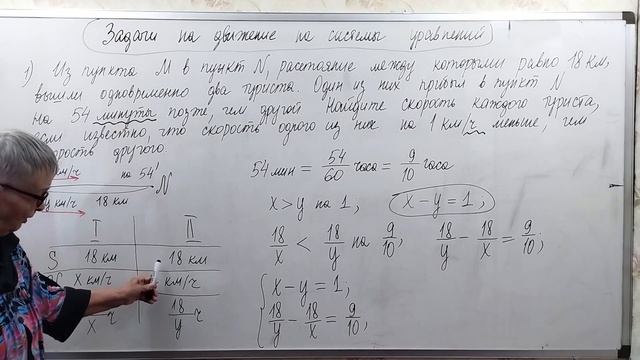 Задачи на движение на системы уравнений
1) Из пункта M в пункт N, расстояние между которыми равно 18 км,
вышли одновременно два туриста. Один из них прибыл в пункт N
на 54 минуты позже, чем другой. Найдите скорость каждого туриста,
если известно, что скорость одного из них на 1 км/ч меньше, чем
скорость другого.
км/ч на 54' N
y км/ч 18 км
I II
S 18 км 18 км
x км/ч км/ч
18/x ч 18/y ч
54 мин = 54/60 часа = 9/10 часа
x > y на 1, x - y = 1,
18/x < 18/y на 9/10, 18/y - 18/x = 9/10;
{ x - y = 1,
18/y - 18/x = 9/10,